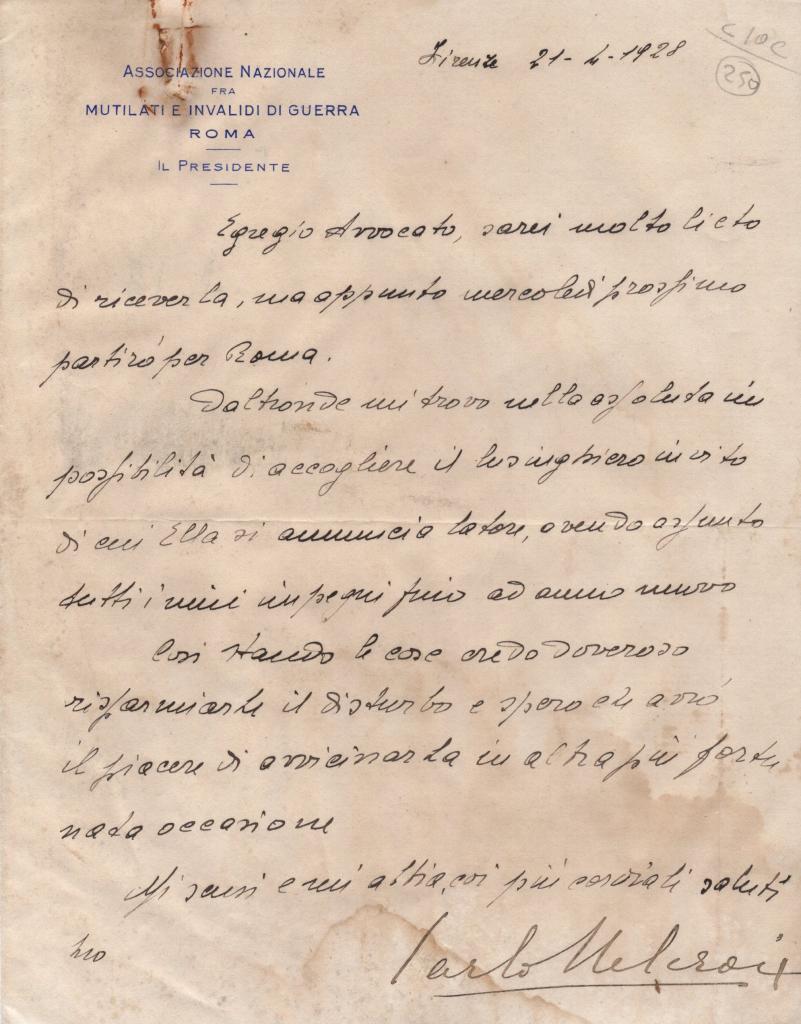 Associazione Nazionale
fra
Mutilati e Invalidi di Guerra
Roma
Il Presidente
Firenze 21-4-1928
250
Egregio Avvocato, sarei molto lieto
di riceverla, ma appunto mercoledì prossimo
partirò per Roma.
Daltronde mi trovo nella assoluta im
possibilità di accogliere il lusinghiero invito
di cui Ella si annuncia latore, avendo assunto
tutti i miei impegni fino ad anno nuovo
Così stando le cose credo doveroso
risparmiarle il disturbo e spero che avrò
il piacere di avvicinarla in altra più fortu
nata occasione
Mi scusi e mi abbia, coi più cordiali saluti
suo
Carlo Delcroix